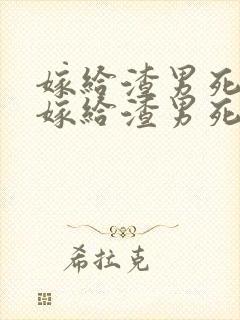 嫁给渣男死
嫁给渣男死
希拉克